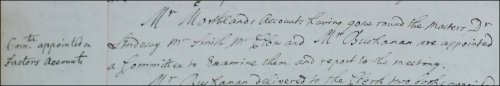 Mr Morthlands Accounts having gone round the Masters Dr
Comtee appointed on
Factors Accounts
Findlay Mr Smith Mr and Mr Buchanan are appointed
a Committee to Examine them and report to the meeting.
Mr Buchanan delivered to the Clerk two books